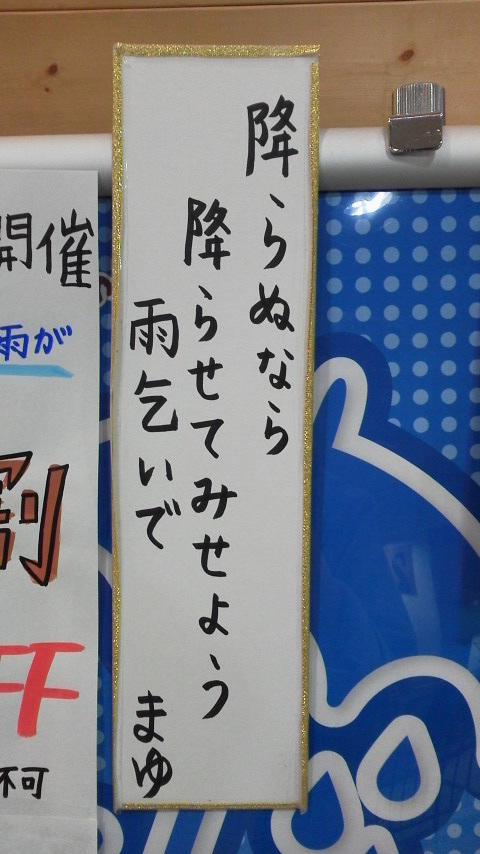 降らぬなら
降らせてみせよう
雨乞いで
まゆ
開催
雨が
割
不可